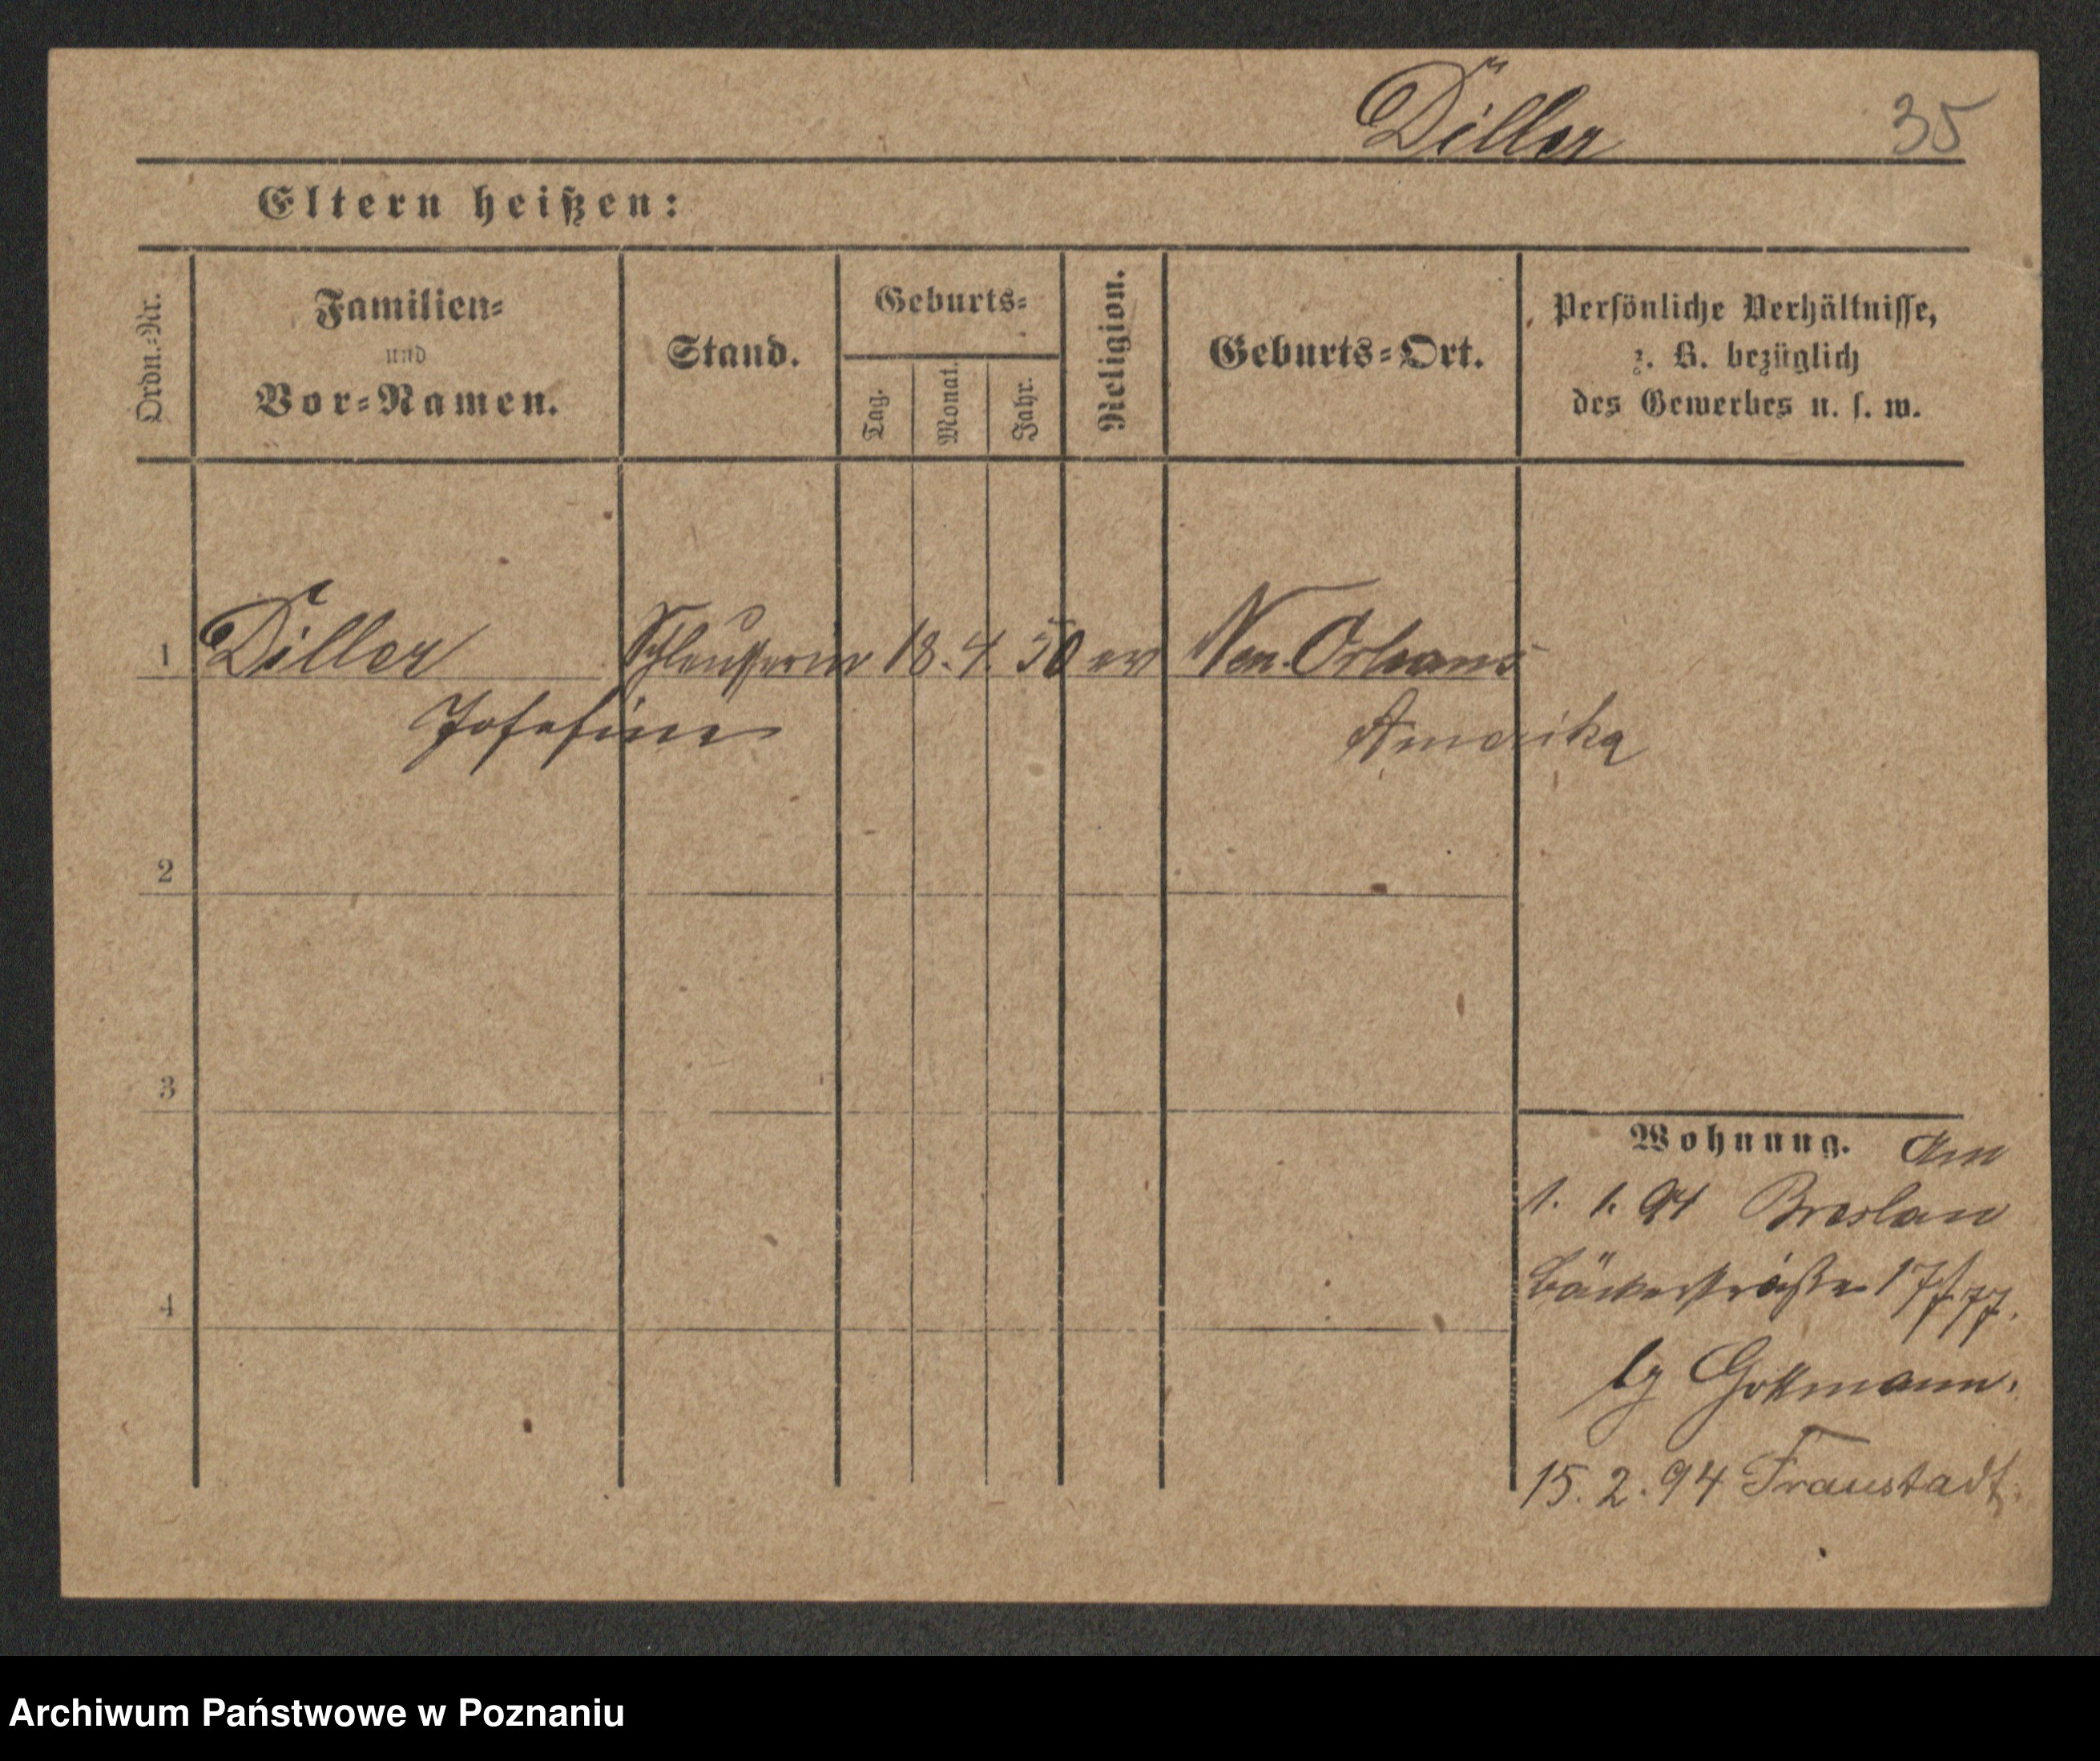 Diller 35
Eltern heißen:
Ordn.-Nr.
Familien-
und
Vor-Namen.
Stand.
Geburts-
Tag.
Monat.
Jahr.
Religion.
Geburts-Ort.
Persönliche Verhältnisse,
z. B. bezüglich
des Gewerbes u. s. w.
1 Diller 18. 4. 50 ev Neu-Orleans
Josefine Amerika
2
3
4
Wohnung. Am
1. 1. 94 Breslau
Bäckerstraße 17/77.
Gottmann.
15. 2. 94 Fraustadt.
Archiwum Państwowe w Poznaniu